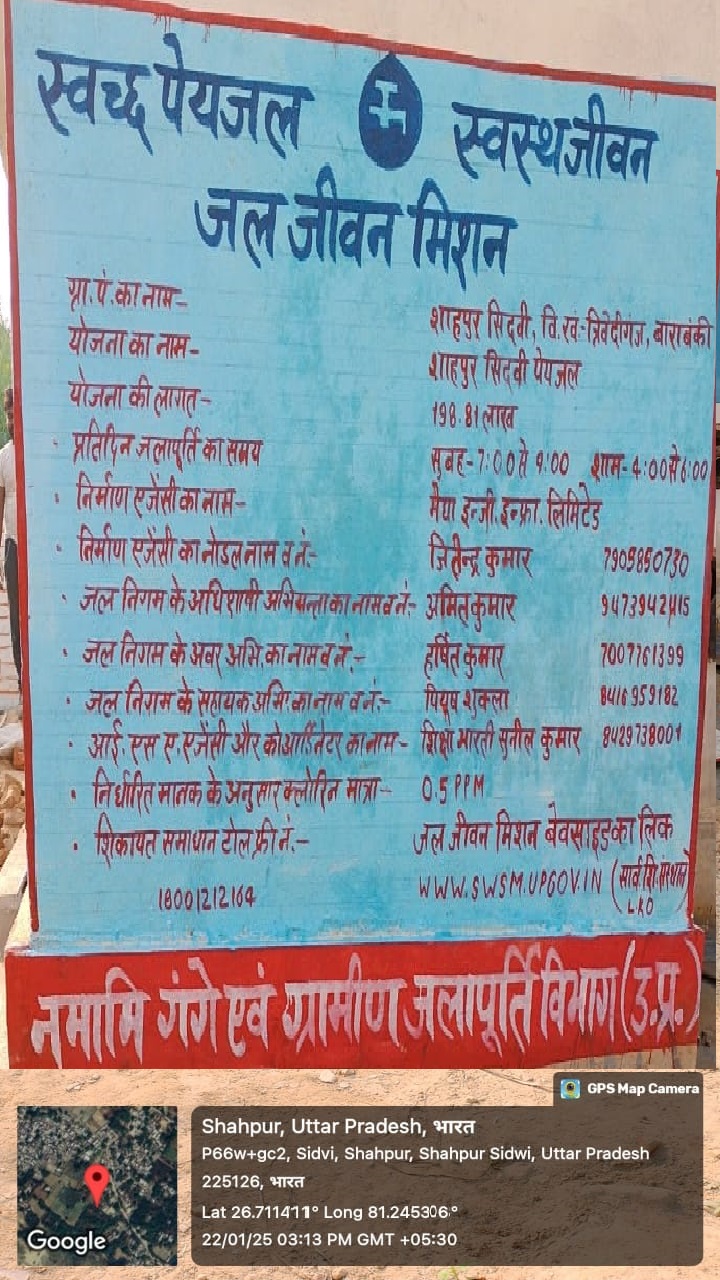 स्वच्छ पेयजल स्वस्थ जीवन
जल जीवन मिशन
ग्रा.पं. का नाम- शाहपुर सिदवी, वि.खं:-त्रिवेदीगंज, बाराबंकी
योजना का नाम- शाहपुर सिदवी पेयजल
योजना की लागत- 198.81 लाख
प्रतिदिन जलापूर्ति का समय सुबह-7:00 से 9:00 शाम-4:00 से 6:00
निर्माण एजेंसी का नाम- मेघा इन्जी. इन्फ्रा. लिमिटेड
निर्माण एजेंसी का नोडल नाम व नं:- जितेन्द्र कुमार 7905850730
जल निगम के अधिशाषी अभियन्ता का नाम व नं:- अमित कुमार
जल निगम के अवर अभि. का नाम व नं:- हर्षित कुमार 7007761399
जल निगम के सहायक अभि. का नाम व नं:- पियूष शुक्ला 8416959182
आई.एस ए. एजेंसी और कोआर्डिनेटर का नाम- शिक्षा भारती सुनील कुमार 8429738001
निर्धारित मानक के अनुसार क्लोरिन मात्रा- 0.5 PPM
शिकायत समाधान टोल फ्री नं.- जल जीवन मिशन बेवसाइड का लिंक
18001212164 WWW.SWSM.UPGOV.IN
LKO
नमामि गंगे एवं ग्रामीण जलापूर्ति विभाग (उ.प्र.)
GPS Map Camera
Shahpur, Uttar Pradesh, भारत
P66w+gc2, Sidvi, Shahpur, Shahpur Sidwi, Uttar Pradesh
225126, भारत
Lat 26.711411° Long 81.245306°
22/01/25 03:13 PM GMT +05:30
Google